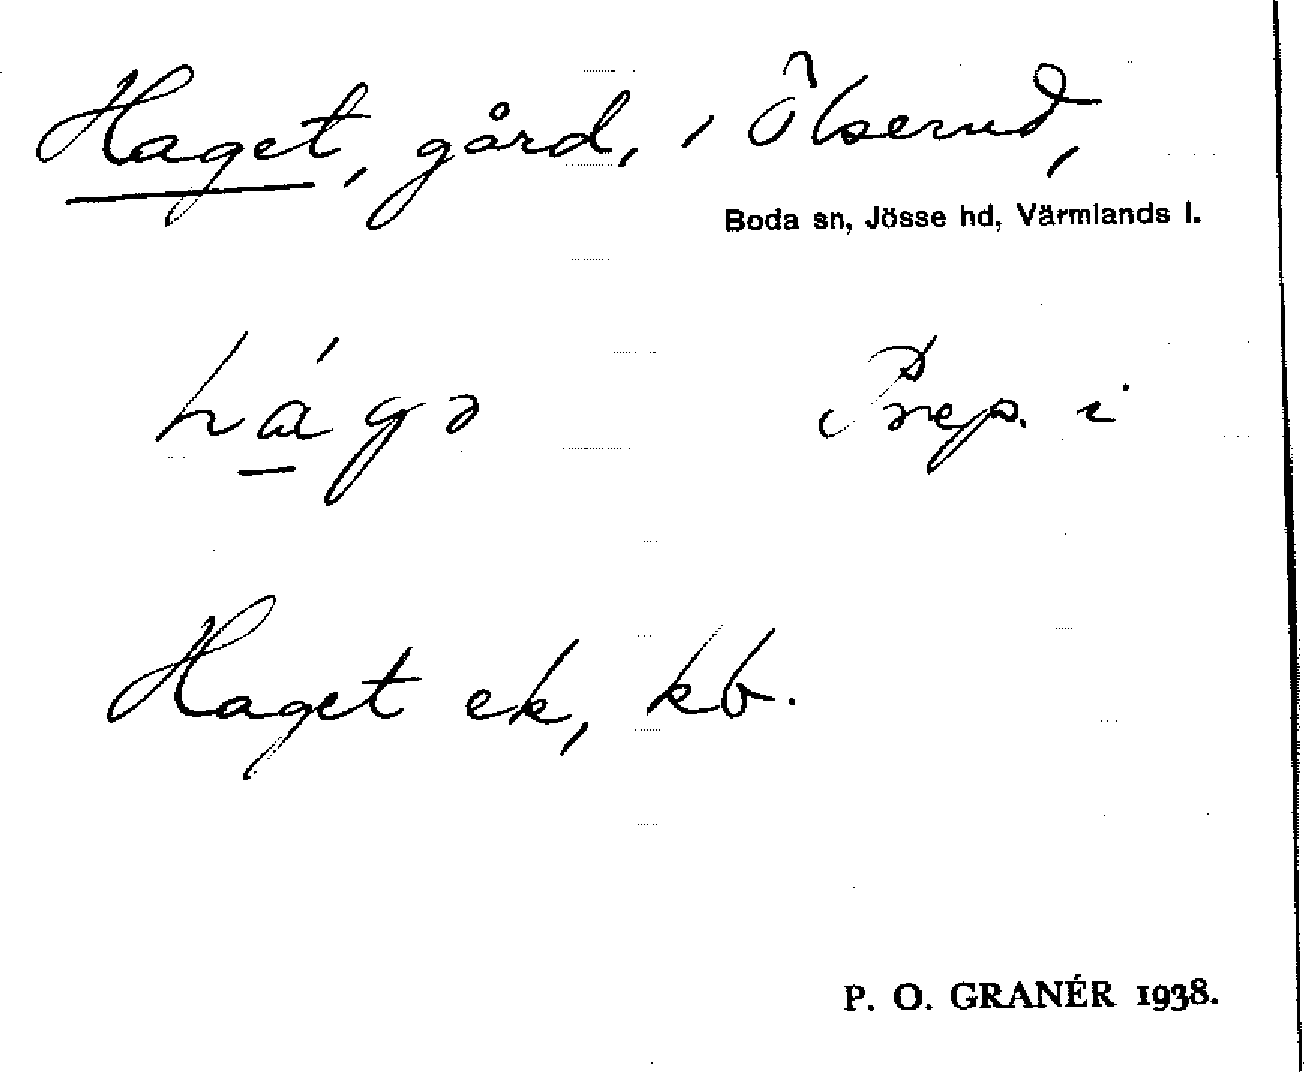 Haget, gård, i Ölserud,
Boda sn, Jösse hd, Värmlands l.
há̱gə Prep. i
Haget ek, kb.
P. O. GRANÉR 1938.